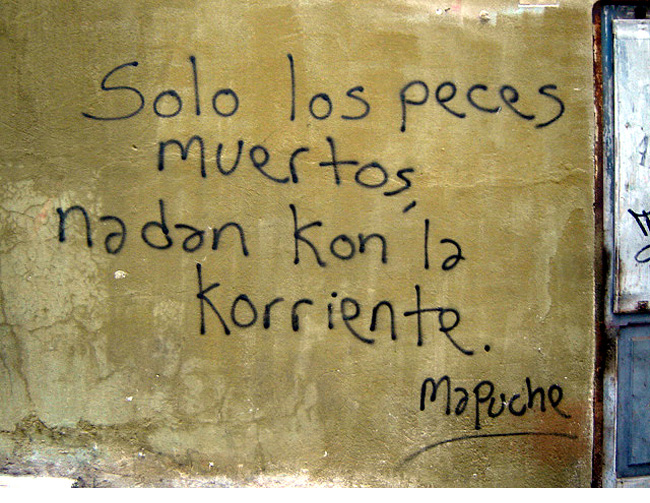 Solo los peces
muertos,
nadan kon la
korriente.
Mapuche